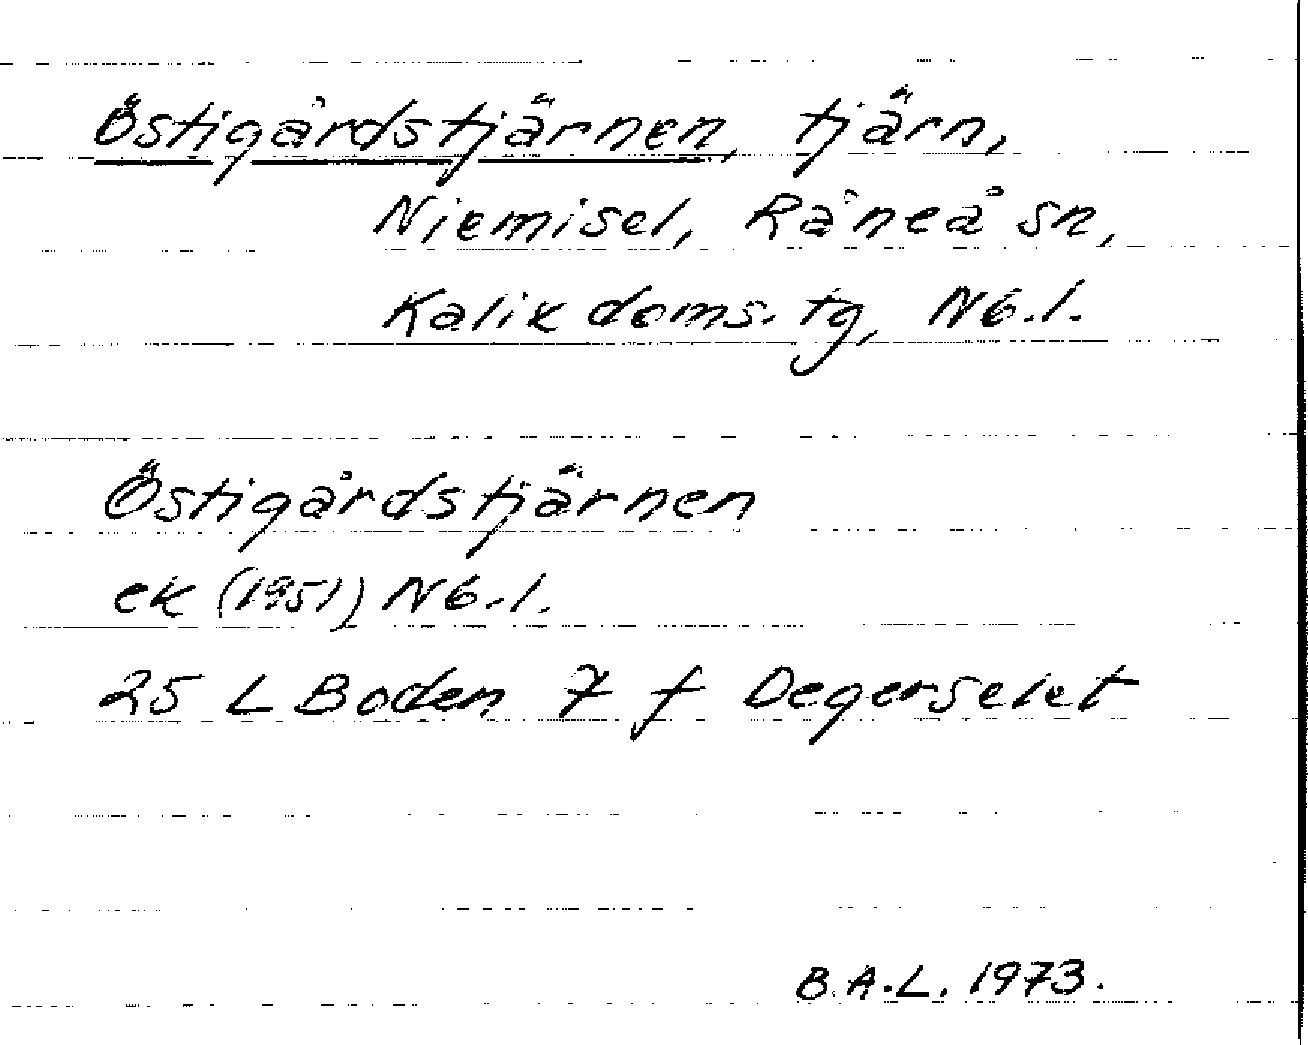 Östigårdstjärnen, tjärn,
Niemisel, Råneå sn,
Kalix doms. tg, Nb.l.
Östigårdstjärnen
ek (1951) Nb.l.
25 L Boden 7 f Degerselet
B.A.L. 1973.